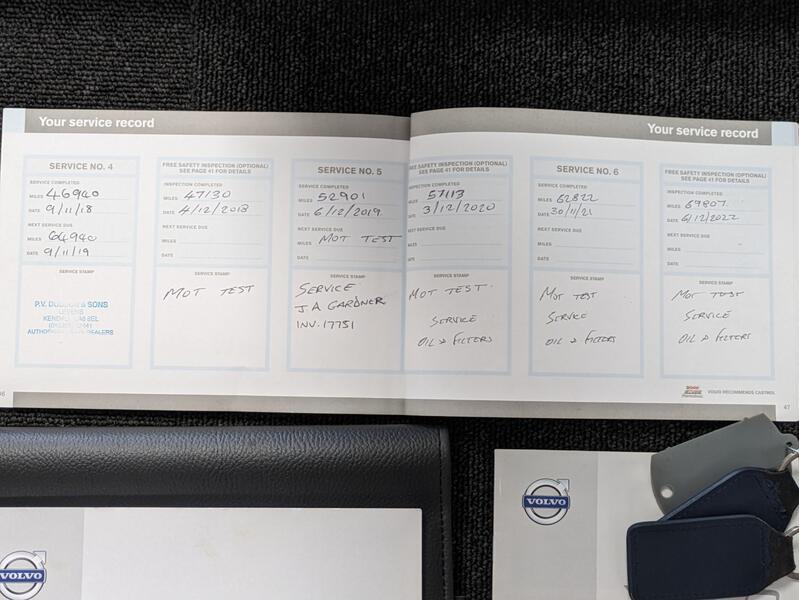 Your service record
SERVICE NO. 4
SERVICE COMPLETED
MILES 46940
DATE 9/11/18
NEXT SERVICE DUE
MILES 64940
DATE 9/11/19
SERVICE STAMP
& SONS
LEVENS
KENDAL LA8 8EL
FREE SAFETY INSPECTION (OPTIONAL)
SEE PAGE 41 FOR DETAILS
INSPECTION COMPLETED
MILES 47130
DATE 4/12/2018
NEXT SERVICE DUE
MILES
DATE
SERVICE STAMP
MOT TEST
SERVICE NO. 5
SERVICE COMPLETED
MILES 52901
DATE 6/12/2019
NEXT SERVICE DUE
MILES MOT TEST
DATE
SERVICE STAMP
SERVICE
J A GARDNER
INV. 17751
Your service record
FREE SAFETY INSPECTION (OPTIONAL)
SEE PAGE 41 FOR DETAILS
INSPECTION COMPLETED
MILES 57113
DATE 3/12/2020
NEXT SERVICE DUE
MILES
DATE
SERVICE STAMP
MOT TEST.
SERVICE
OIL & FILTERS
SERVICE NO. 6
SERVICE COMPLETED
MILES 62822
DATE 30/11/21
NEXT SERVICE DUE
MILES
DATE
SERVICE STAMP
MOT TEST
SERVICE
OIL & FILTERS
FREE SAFETY INSPECTION (OPTIONAL)
SEE PAGE 41 FOR DETAILS
INSPECTION COMPLETED
MILES 69807
DATE 6/12/2022
NEXT SERVICE DUE
MILES
DATE
SERVICE STAMP
MOT TEST
SERVICE
OIL & FILTERS
VOLVO RECOMMENDS CASTROL
47
VOLVO
VOLVO